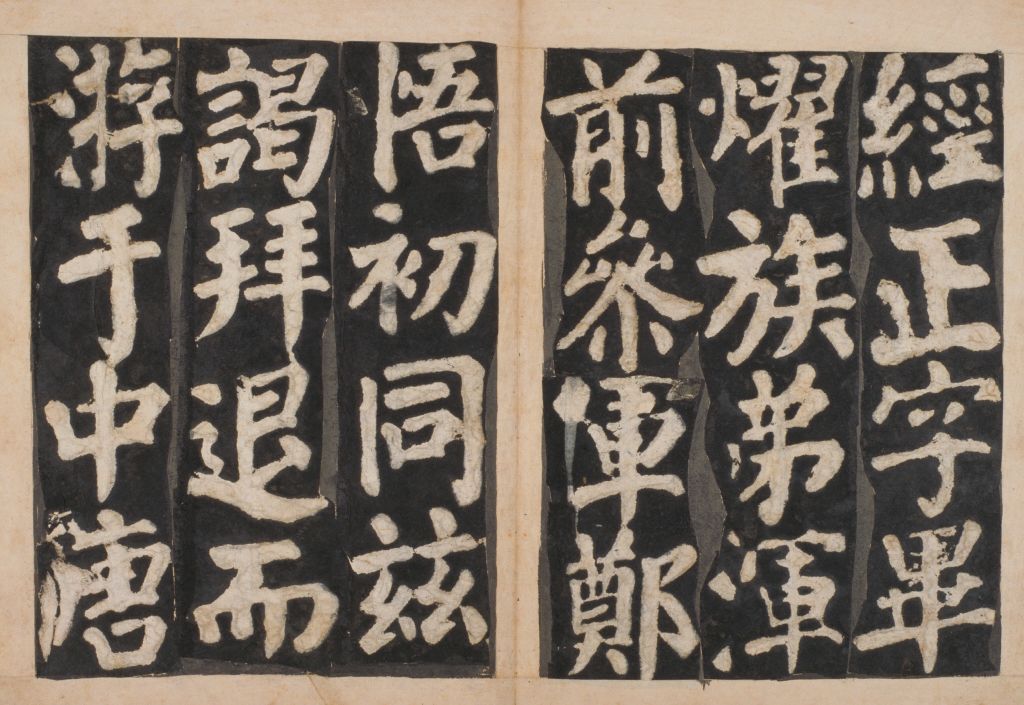 經正字畢
燿族弟渾
前參軍鄭
悟初同兹
謁拜退而
游于中唐